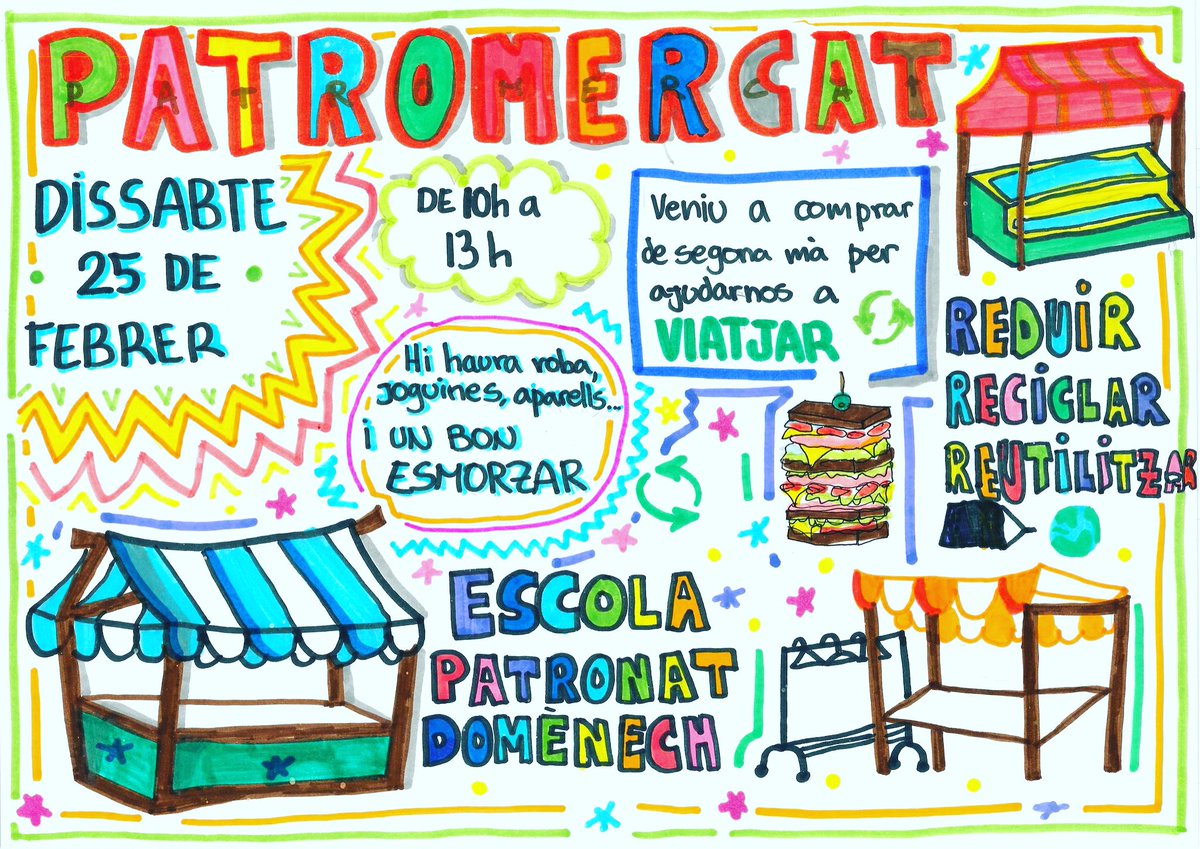 PATROMERCAT
DISSABTE
25 DE
FEBRER
DE 10h a
13h
Veniu a comprar
de segona mà per
ajudarnos a
VIATJAR
Hi haura roba,
joguines, aparells...
i UN BON
ESMORZAR
REDUIR
RECICLAR
REUTILITZAR
ESCOLA
PATRONAT
DOMÈNECH